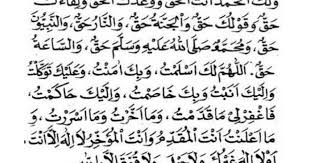 وَلَكَ الْحَمْدُ أَنْتَ الْحَقُّ وَوَعْدُكَ الْحَقُّ وَلِقَاءُكَ
حَقٌّ وَقَوْلُكَ حَقٌّ وَالْجَنَّةُ حَقٌّ، وَالنَّارُحَقٌّ، وَالنَّبِيُّوْنَ
حَقٌّ، وَمُحَمَّدٌ صَلَّى اللهُ عَلَيْهِ وَسَلَّمَ حَقٌّ، وَالسَّاعَةُ
حَقٌّ. اَللّٰهُمَّ لَكَ اَسْلَمْتُ، وَبِكَ اٰمَنْتُ، وَعَلَيْكَ تَوَكَّلْتُ
وَاِلَيْكَ اَنَبْتُ وَبِكَ خَاصَمْتُ، وَاِلَيْكَ حَاكَمْتُ،
فَاغْفِرْلِيْ مَاقَدَّمْتُ، وَمَآاَخَّرْتُ وَمَآاَسْرَرْتُ،
وَمَآاَعْلَنْتُ اَنْتَ الْمُقَدِّمُ وَاَنْتَ الْمُؤَخِّرُ لَآاِلٰهَ اِلَّااَنْتَ.